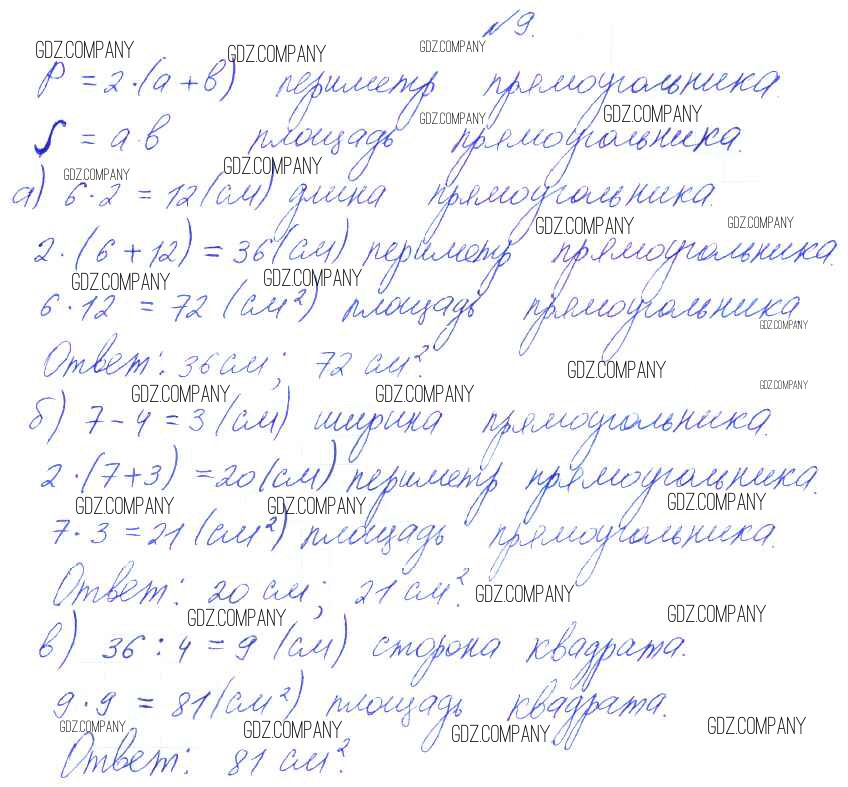 №9.
GDZ.COMPANY GDZ.COMPANY GDZ.COMPANY
P = 2·(a+b) периметр прямоугольника.
GDZ.COMPANY GDZ.COMPANY
S = a·b площадь прямоугольника.
GDZ.COMPANY GDZ.COMPANY
а) 6·2 = 12(см) длина прямоугольника.
GDZ.COMPANY GDZ.COMPANY
2·(6+12) = 36(см) периметр прямоугольника.
GDZ.COMPANY GDZ.COMPANY
6·12 = 72 (см²) площадь прямоугольника
GDZ.COMPANY
Ответ: 36см; 72 см².
GDZ.COMPANY GDZ.COMPANY
GDZ.COMPANY GDZ.COMPANY
б) 7-4=3 (см) ширина прямоугольника.
2·(7+3) =20(см) периметр прямоугольника.
GDZ.COMPANY GDZ.COMPANY GDZ.COMPANY
7·3=21 (см²) площадь прямоугольника.
Ответ: 20 см; 21 см².
GDZ.COMPANY
GDZ.COMPANY GDZ.COMPANY
в) 36 : 4 = 9 (см) сторона квадрата.
9·9 = 81(см²) площадь квадрата.
GDZ.COMPANY GDZ.COMPANY GDZ.COMPANY GDZ.COMPANY
Ответ: 81 см².